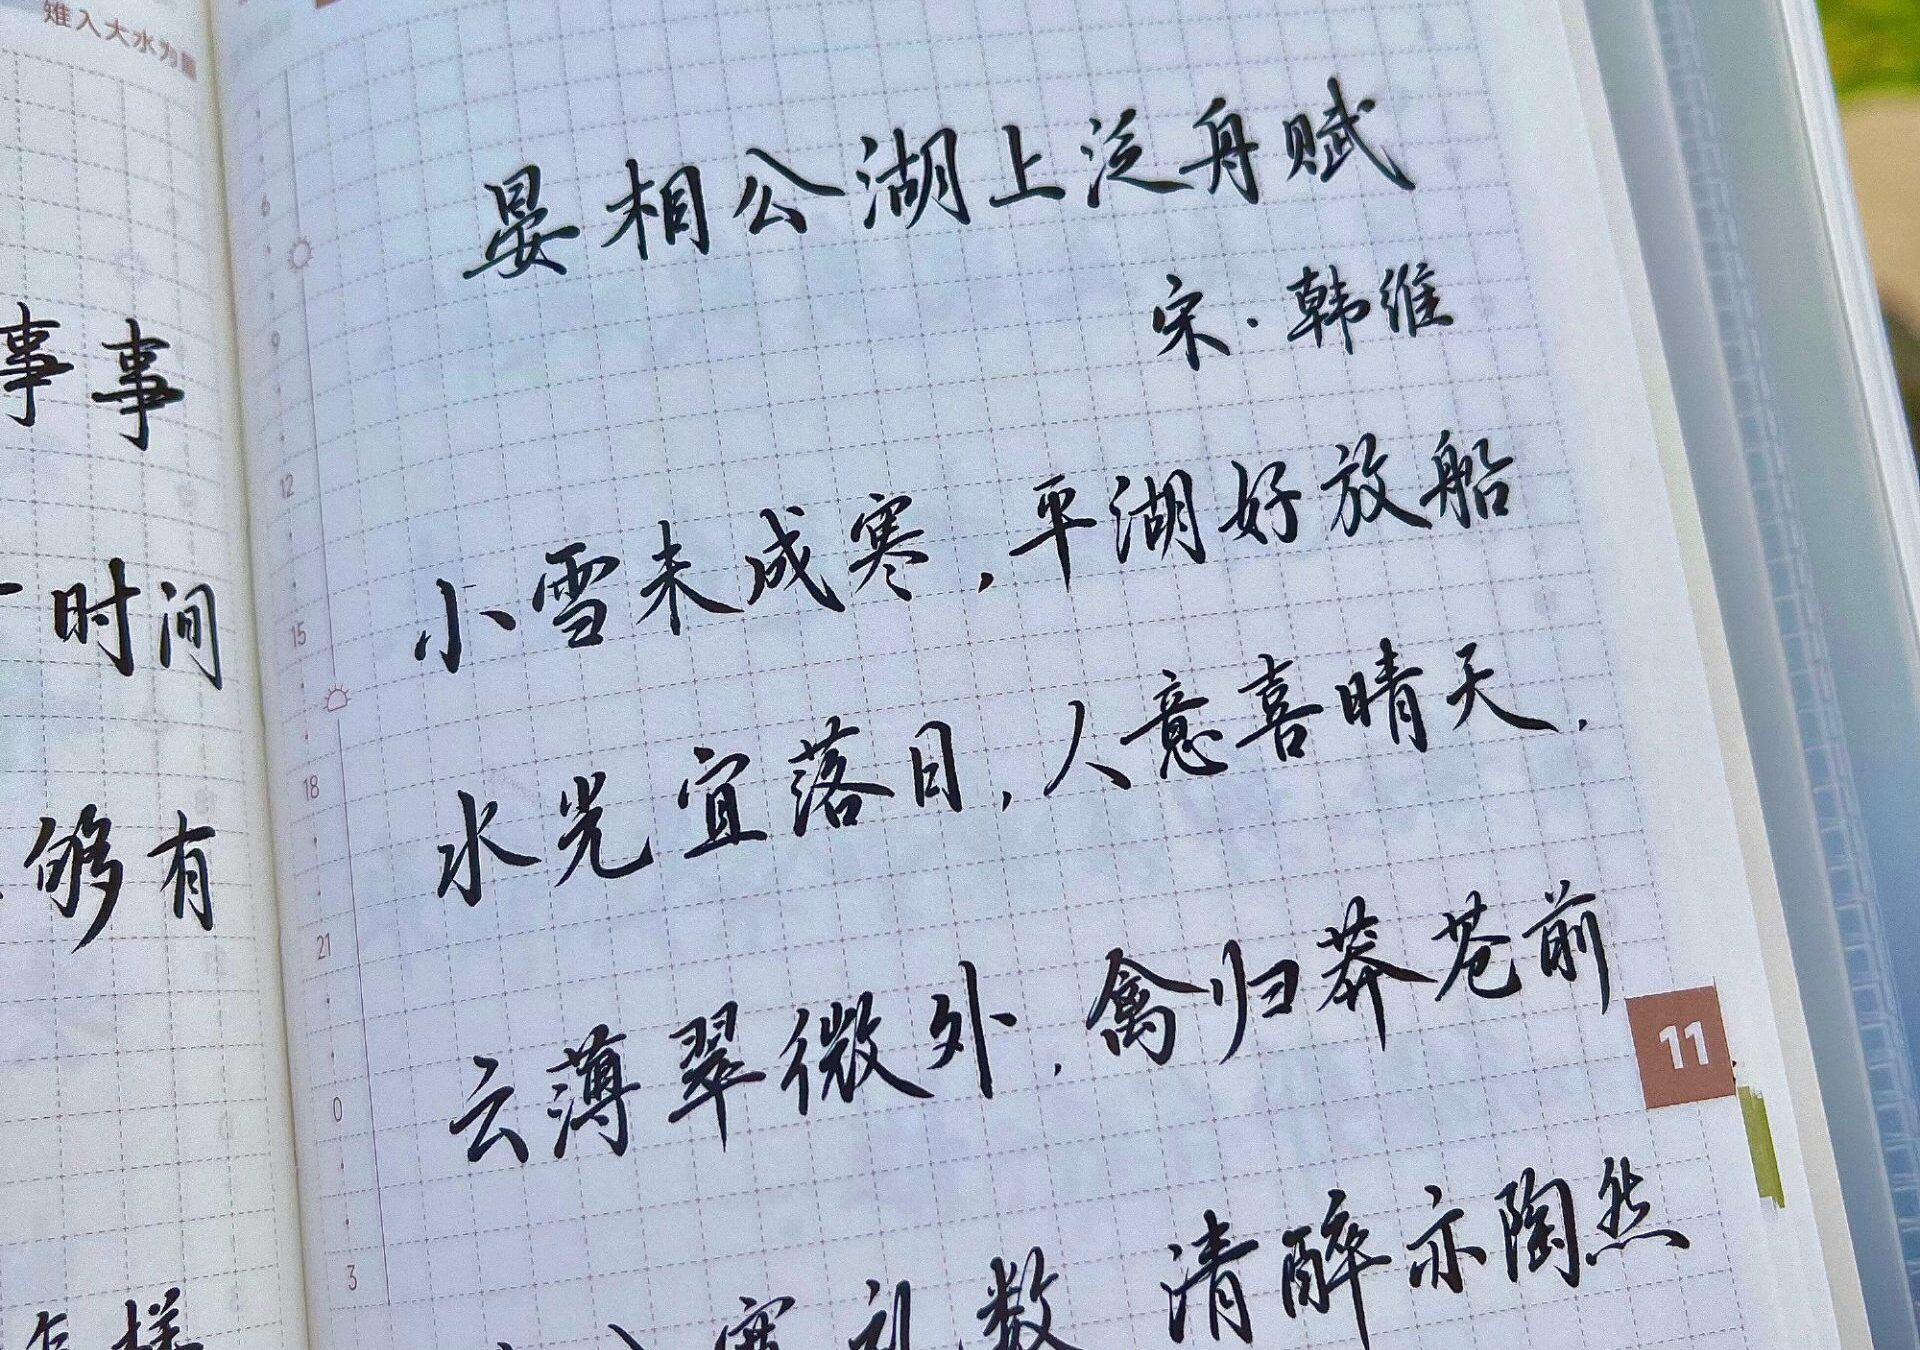 雉入大水为蜃
事事
时间
够有
怎样
晏相公湖上泛舟赋
宋·韩维
小雪未成寒，平湖好放船
水光宜落日，人意喜晴天．
云薄翠微外，禽归莽苍前
宽礼数 清醉亦陶然
6
9
12
15
18
21
0
3
11